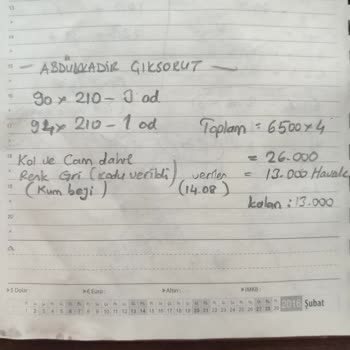 - ABDÜLKADİR GIKSORUT -
90 x 210 - 3 ad
94 x 210 - 1 ad
Toplam = 6500 x 4
Kol ve Cam dahil = 26.000
Renk Gri (Kodu verildi) verilen = 13.000 Havale
(Kum beji) (14.08)
kalan : 13.000
2016 Şubat